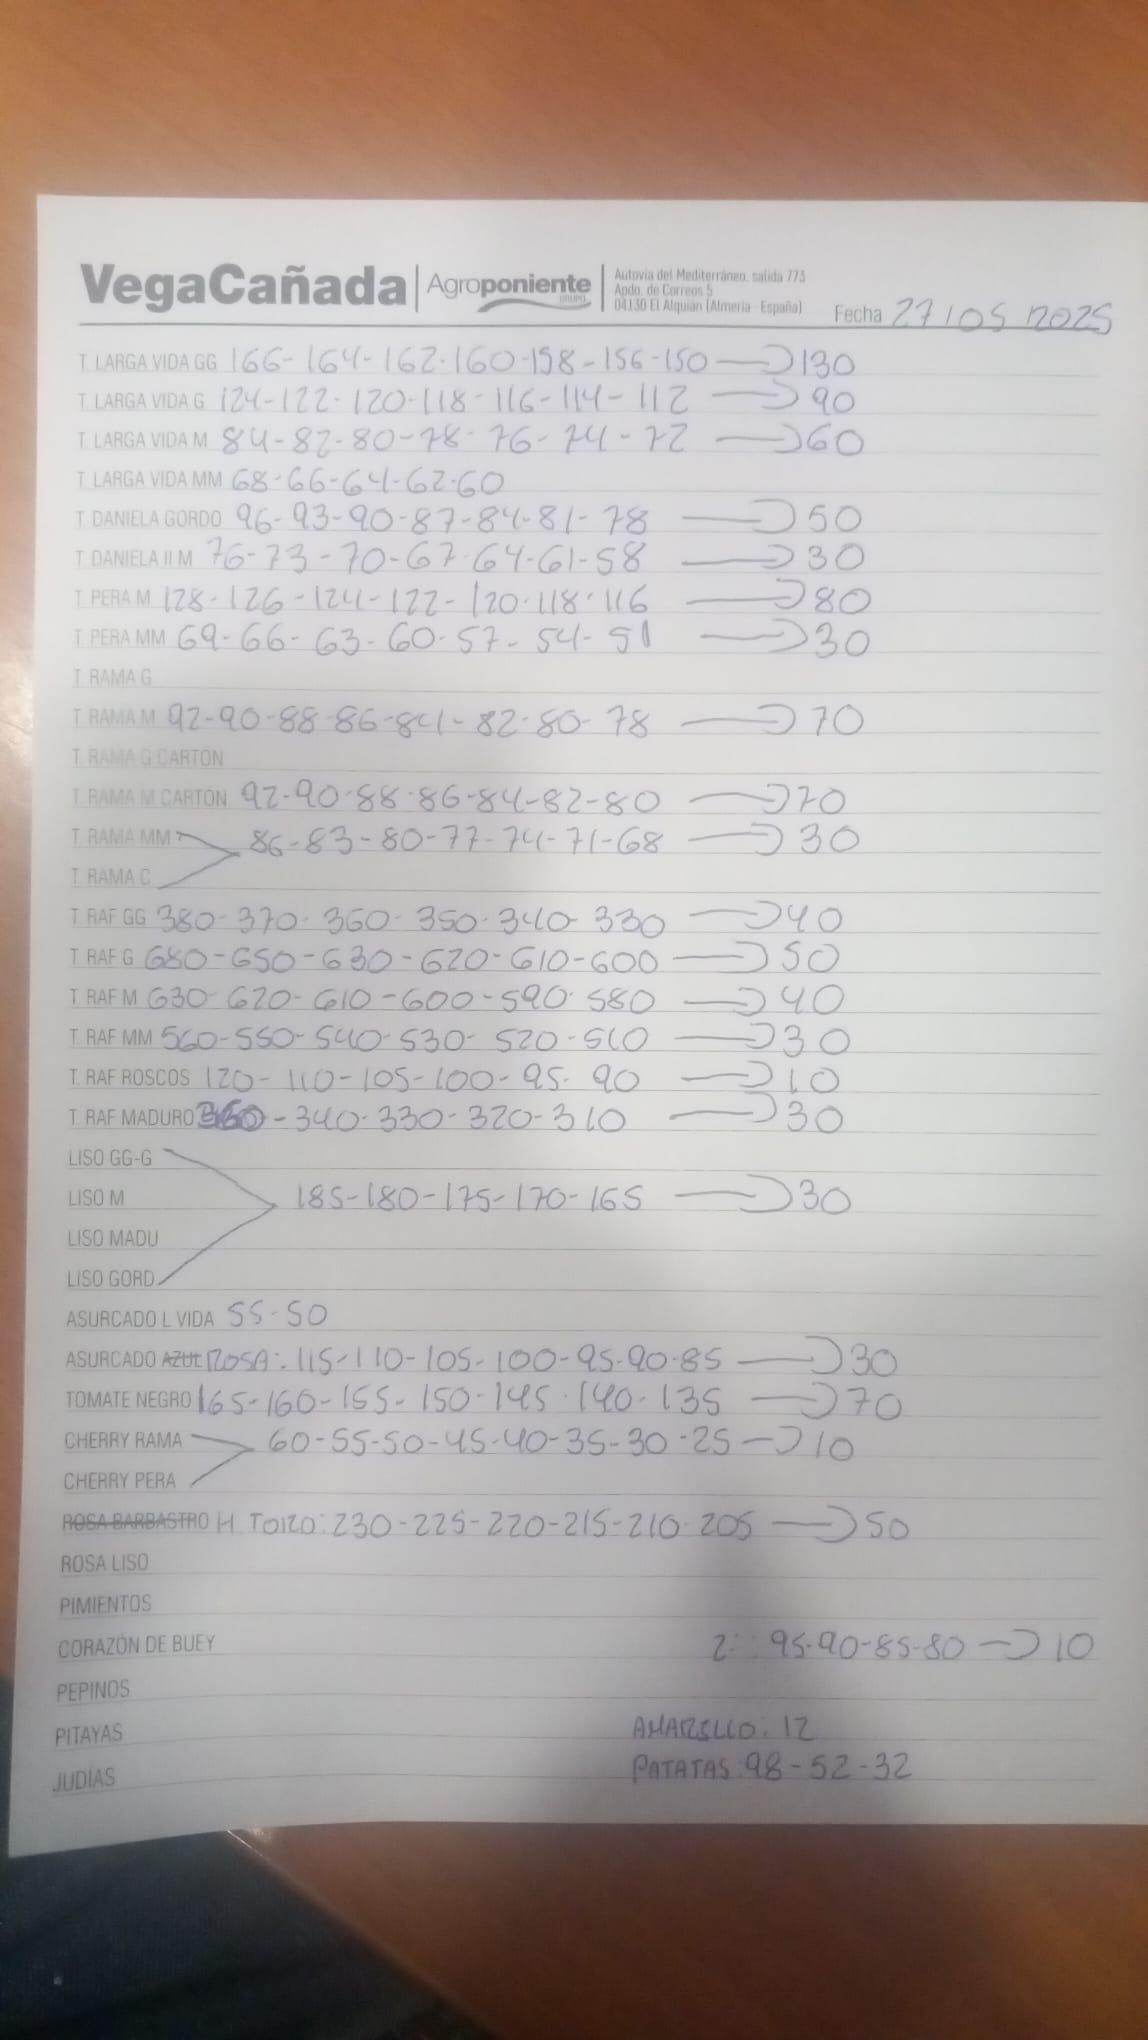 VegaCañada Agroponiente GRUPO
Autovía del Mediterráneo, salida 773
Apdo. de Correos 5
04130 El Alquián (Almería España)
Fecha 27/05/2025
T. LARGA VIDA GG 166-164-162-160-158-156-150 → 130
T. LARGA VIDA G 124-122-120-118-116-114-112 → 90
T. LARGA VIDA M 84-82-80-78-76-74-72 → 60
T. LARGA VIDA MM 68-66-64-62-60
T. DANIELA GORDO 96-93-90-87-84-81-78 → 50
T. DANIELA II M 76-73-70-67-64-61-58 → 30
T. PERA M 128-126-124-122-120-118-116 → 80
T. PERA MM 69-66-63-60-57-54-51 → 30
T. RAMA G
T. RAMA M 92-90-88-86-84-82-80-78 → 70
T. RAMA G CARTÓN
T. RAMA M CARTÓN 92-90-88-86-84-82-80 → 70
T. RAMA MM 86-83-80-77-74-71-68 → 30
T. RAMA C
T. RAF GG 380-370-360-350-340-330 → 40
T. RAF G 680-650-630-620-610-600 → 50
T. RAF M 630-620-610-600-590-580 → 40
T. RAF MM 560-550-540-530-520-510 → 30
T. RAF ROSCOS 120-110-105-100-95-90 → 10
T. RAF MADURO -340-330-320-310 → 30
LISO GG-G
LISO M 185-180-175-170-165 → 30
LISO MADU
LISO GORD
ASURCADO L VIDA 55-50
ASURCADO AZUL ROSA: 115-110-105-100-95-90-85 → 30
TOMATE NEGRO 165-160-155-150-145-140-135 → 70
CHERRY RAMA 60-55-50-45-40-35-30-25 → 10
CHERRY PERA
ROSA BARBASTRO H TORO: 230-225-220-215-210-205 → 50
ROSA LISO
PIMIENTOS
CORAZÓN DE BUEY 2: 95-90-85-80 → 10
PEPINOS
PITAYAS AMARILLO: 12
JUDÍAS PATATAS: 98-52-32